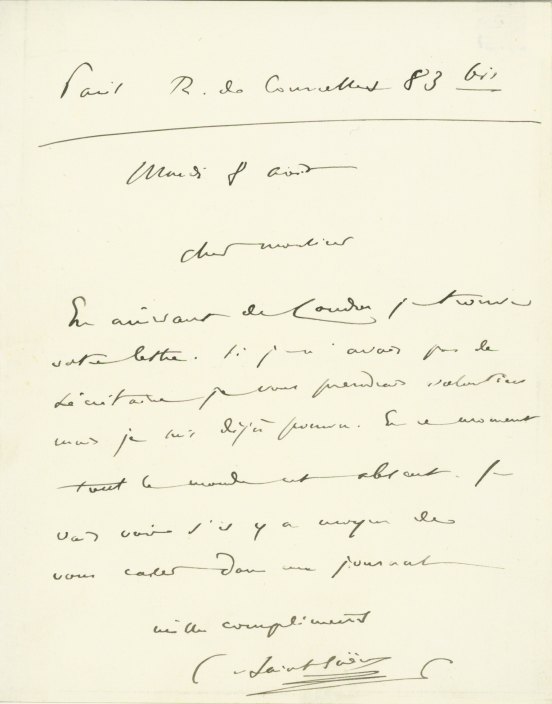 Paris R. de Courcelles 83 bis
Mardi 8 avril
Cher monsieur
En arrivant de Londres je trouve
votre lettre. Si je n'avais pas de
secrétaire je vous prendrais volontiers
mais je suis déjà pourvu. En ce moment
tout le monde est absent. Je
vais voir s'il y a moyen de
vous caser dans un journal
mille compliments
C. Saint-Saëns